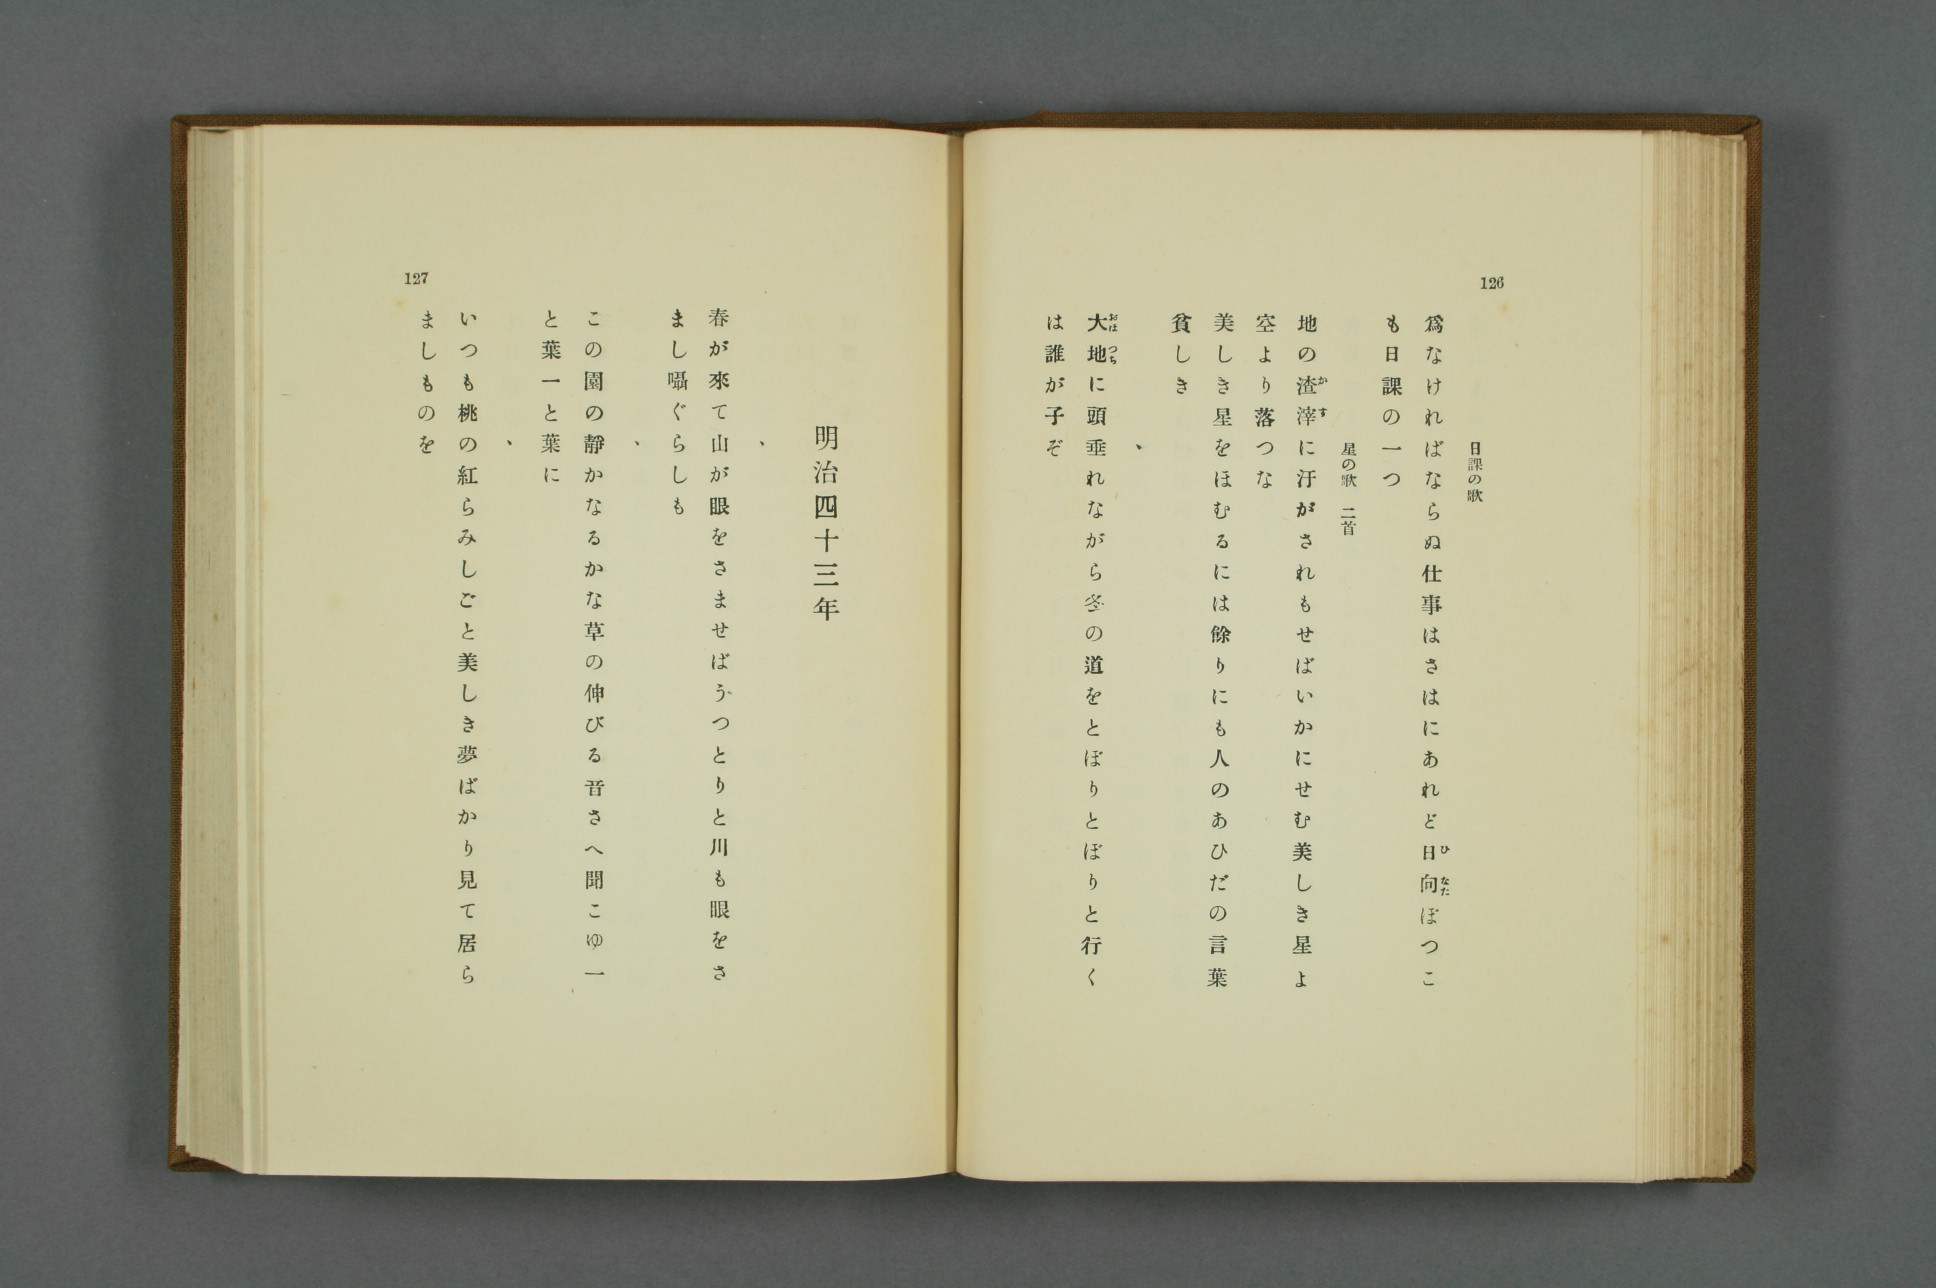 126
日課の歌
爲なければならぬ仕事はさはにあれど日向ぼつこ
も日課の一つ
星の歌 二首
地の渣滓に汗がされもせばいかにせむ美しき星よ
空より落つな
美しき星をほむるには餘りにも人のあひだの言葉
貧しき
、
大地に頭垂れながら冬の道をとぼりとぼりと行く
は誰が子ぞ
127
明治四十三年
、
春が來て山が眼をさませばうつとりと川も眼をさ
まし囁ぐらしも
、
この園の靜かなるかな草の伸びる音さへ聞こゆ一
と葉一と葉に
、
いつも桃の紅らみしごと美しき夢ばかり見て居ら
ましものを